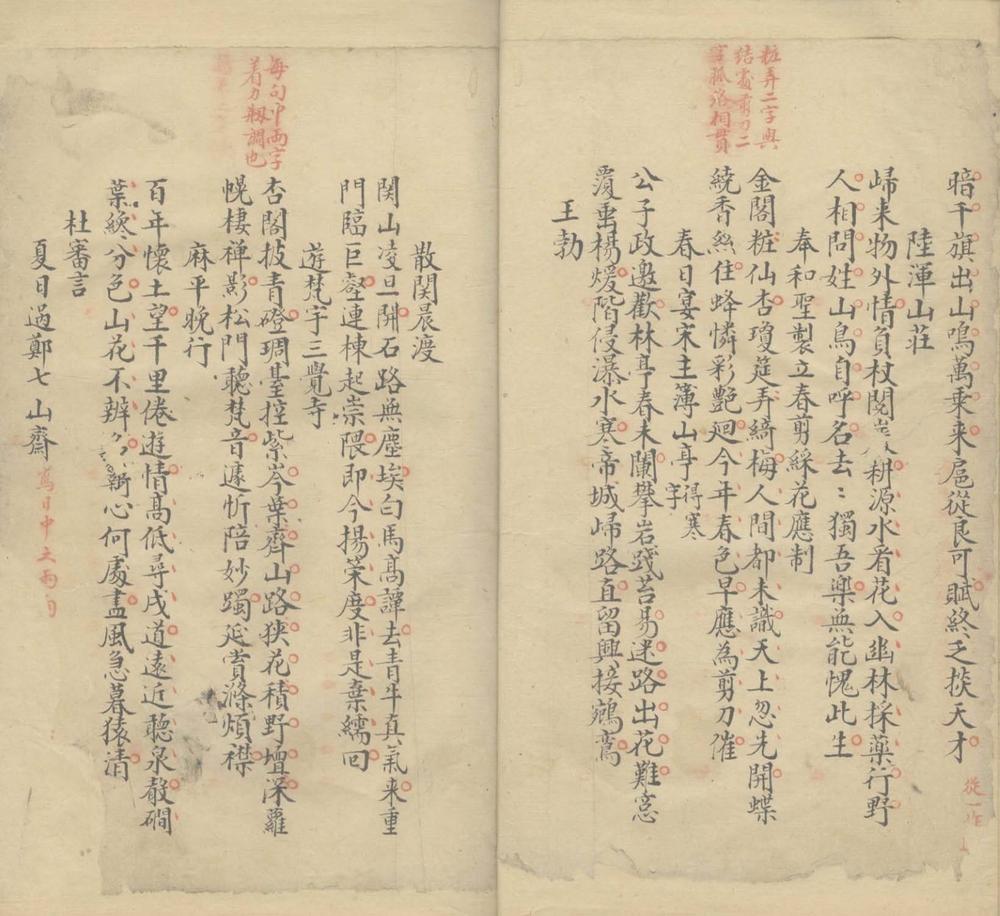 粧弄二字與
結處剪刀二
字孤洛相貫
暗千旗出山鳴萬乗来扈從良可賦終乏掞天才
從一作
陸渾山莊
㱕来物外情負杖閱耕源水看花入幽林採薬行野
人相問姓山鳥自呼名去〻獨吾樂無能愧此生
奉和聖製立春剪綵花應制
金閣粧仙杏瓊筵弄綺梅人間都未識天上忽先開蝶
繞香絲住蜂憐彩艷廻今年春色早應為剪刀催
春日宴宋主簿山亭得寒字
公子政邀歡林亭春未闌攀岩踐苔易迷路出花難窓
覆垂楊煖階侵瀑水寒帝城㱕路直留興接鵷鸞
王勃
每句中兩字
着力㓮調也
散関晨渡
関山凌旦開石路無塵埃白馬高譚去青牛真氣来重
門臨巨壑連棟起崇隈即今揚策度非是棄繻回
遊梵宇三覺寺
杏閣披青磴琱臺控紫岑葉齊山路狹花積野壇深蘿
幌棲禅影松門聴梵音遽忻陪妙躅延賞滌煩襟
麻平晚行
百年懷土望千里倦遊情高低尋戍道遠近聴泉殸磵
葉纔分色山花不辨名覊心何處盡風急暮猿清
杜審言
夏日過鄭七山齋